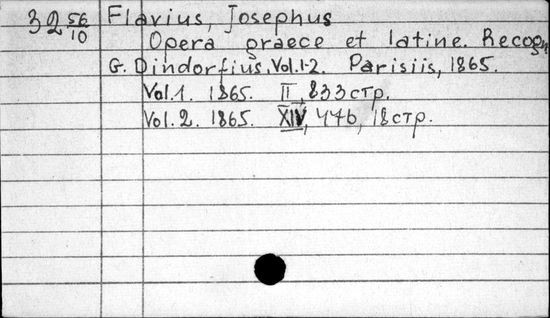 32 56/10 Flavius, Josephus
Opera graece et latine. Recogn
G. Dindorfius, Vol.1-2. Parisiis, 1865.
Vol.1. 1865. II, 833 стр.
Vol.2. 1865. XIV, 446, 18 стр.